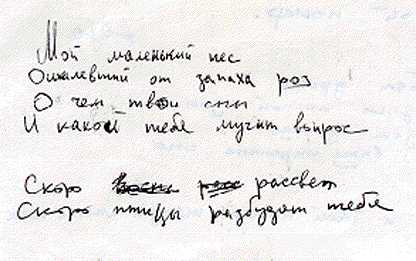 Мой маленький пес
Ошалевший от запаха роз
О чем твои сны
И какой тебя мучит вопрос
Скоро рассвет
Скоро птицы разбудят тебя